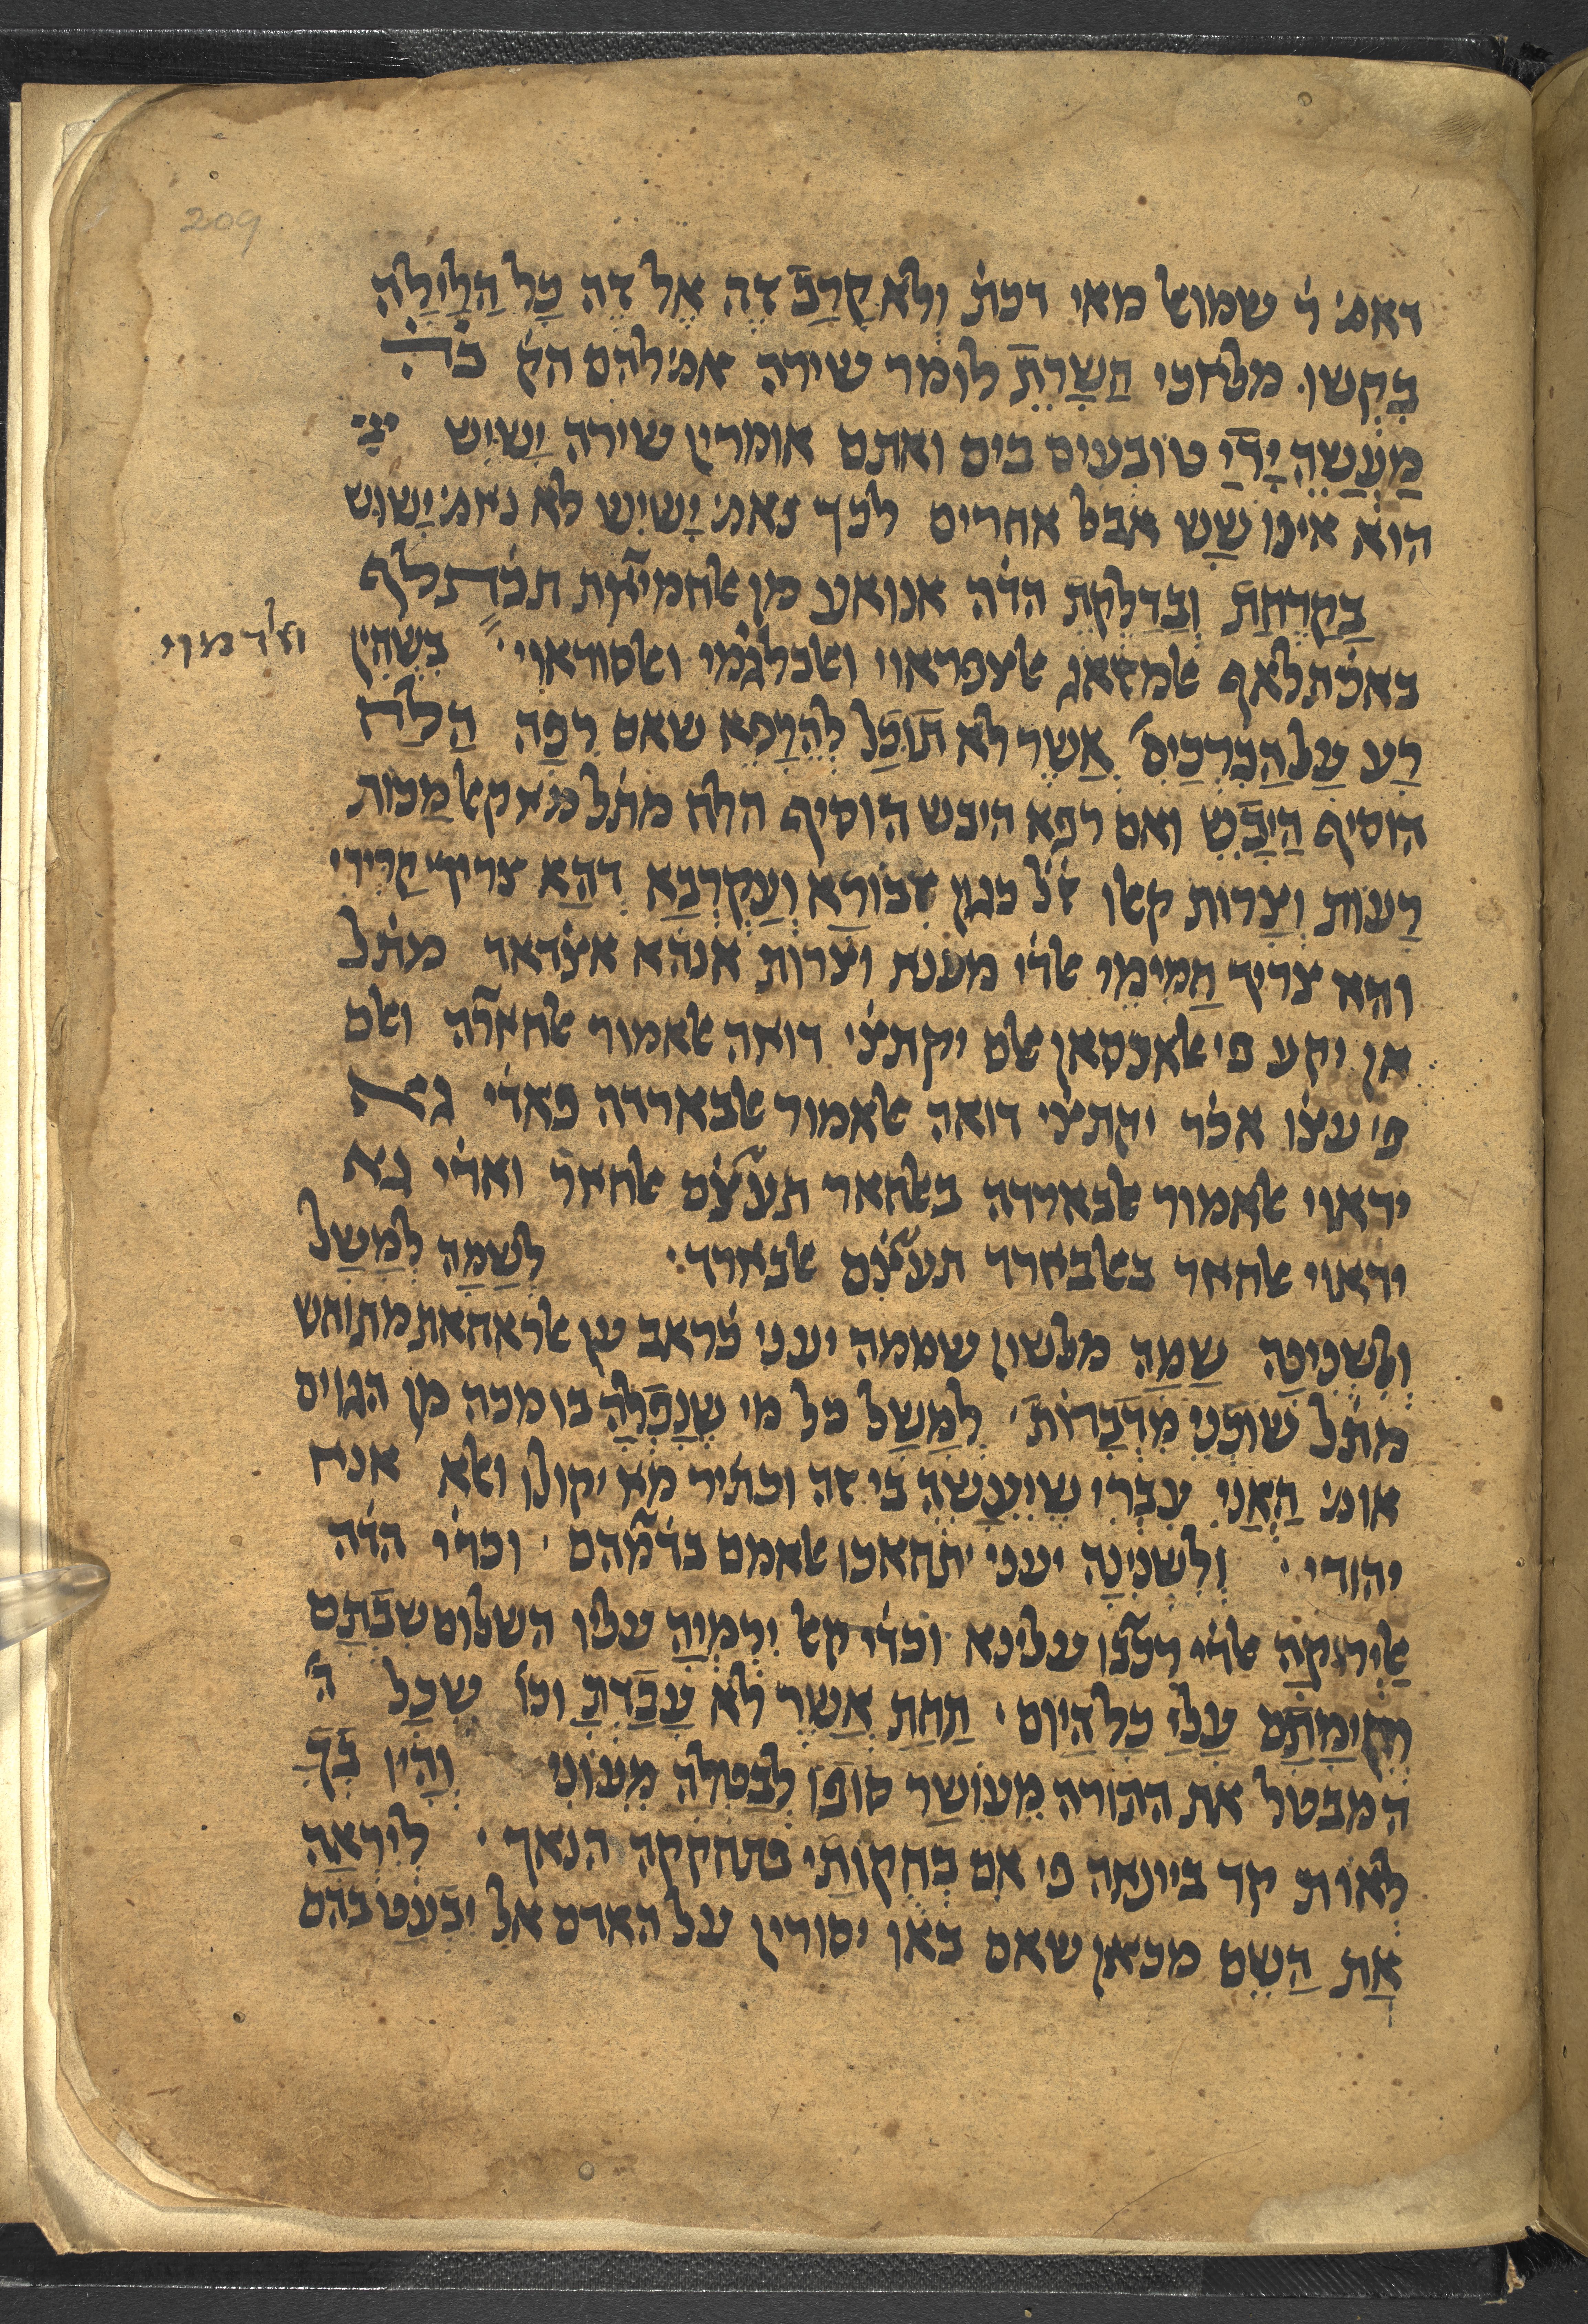 209
דאמ׳ ר׳ שמואל מאי דכת׳ ולא קרב זה אל זה כל הלילה
בקשו מלאכי השרת לומר שירה אמ׳ להם הק׳ ב׳ה׳
מעשה ידי טובעים בים ואתם אומרין שירה ישיש
הוא אינו שש אבל אחרים לכך נאמ׳ ישיש לא נאמ׳ ישוש
בקדחת ובדלקת הד׳ה אנואע מן אלחמיאת תכ׳תלף
באכ׳תלאף אלמזאג אלצפראוי ואלבלגמי ואלסודאוי בשחין
ואלדמוי
רע על הברכים אשר לא תוכל להרפא שאם רפה הלח
הוסיף היבש ואם רפא היבש הוסיף הלח מת׳ל מא קאל מכות
רעות וצרות קאלו ז׳ל כגון זבורא ועקרבא דהא צריך קרירי
והא צריך חמימי אלד׳י מענת וצרות אנהא אצ׳דאד מת׳ל
אן יקע פי אלאנסאן אלם יקתצ׳י דואה אלאמור אלחארה ואלם
פי עצ׳ו אכ׳ר יקתצ׳י דואה אלאמור אלבארדה פאד׳י גא
ידאוי אלאמור אלבארדה באלחאר תעט׳ם אלחאר ואד׳י גא
ידאוי אלחאר באלבארד תעט׳ם אלבארד לשמה למשל
ולשנינה שמה מלשון שממה יעני כ׳ראב ען אלראחאת מתוחש
מת׳ל שוכני מדברות למשל כל מי שנפלה בו מכה מן הגוים
אומ׳ האני עברי שיעשה בי זה וכת׳יר מא יקולו ואלא אנא
יהודי ולשנינה יעני יתחאכו אלאמם בד׳מהם וכד׳ו הד׳ה
וכד׳י קאל ירמיה עליו השלום שבתם
וקימתם עלי כל היום תחת אשר לא עבדת וכו׳ שכל
המבטל את התורה מעושר סופו לבטלה מעוני והיו בך
לאות קד ביונאה פי אם בחקותי פתחקקה הנאך ליראה
את השם מכאן שאם באו יסורין על האדם אל יבעט בהם